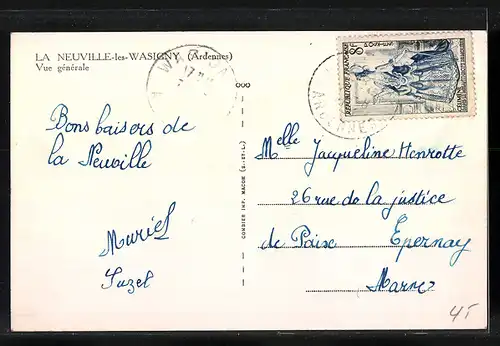 LA NEUVILLE-les-WASIGNY (Ardennes)
Vue générale
WASI
17
ARDENNES
8F
POSTES
REPUBLIQUE FRANÇAISE
Bons baisers de
la Neuville
Muriel
Suzel
COMBIER IMP. MACON (S.-ET-L.)
Melle Jacqueline Henrotte
26 rue de la justice
de Paix Epernay
Marne
45